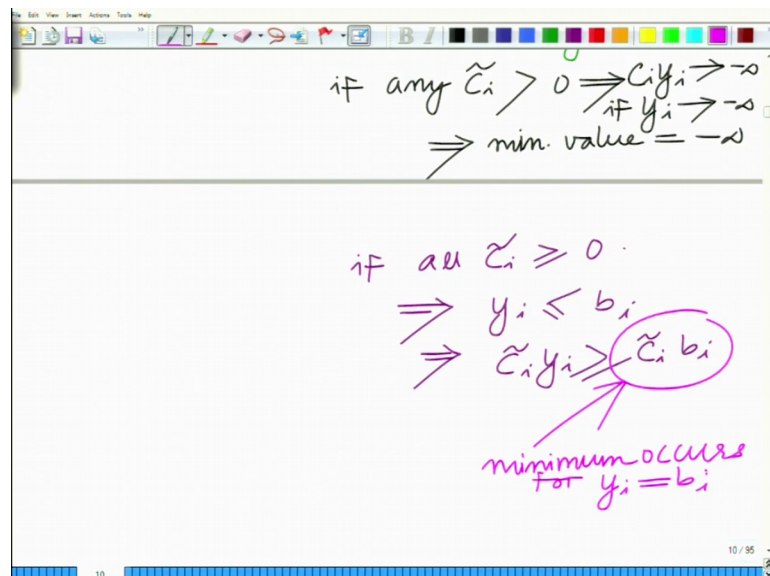 File Edit View Insert Actions Tools Help
B I
if any c̃ᵢ > 0 ⇒ cᵢyᵢ → -∞
if yᵢ → -∞
⇒ min. value = -∞
if all c̃ᵢ ≥ 0.
⇒ yᵢ ≤ bᵢ
⇒ c̃ᵢ yᵢ ≥ c̃ᵢ bᵢ
minimum occurs
for yᵢ = bᵢ
10 / 95
10